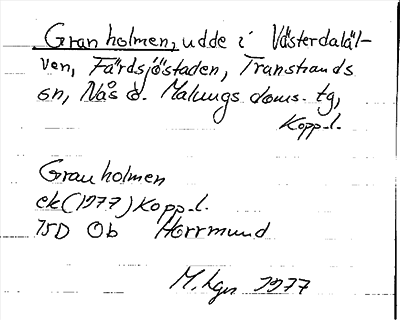 Granholmen, udde i Västerdaläl-
ven, Färdsjöstaden, Transtrands
sn, Nås o. Malungs doms. tg,
Kopp. l.
Granholmen
ek (1977) Kopp. l.
75D Ob Horrmund
M. Lgn 1977